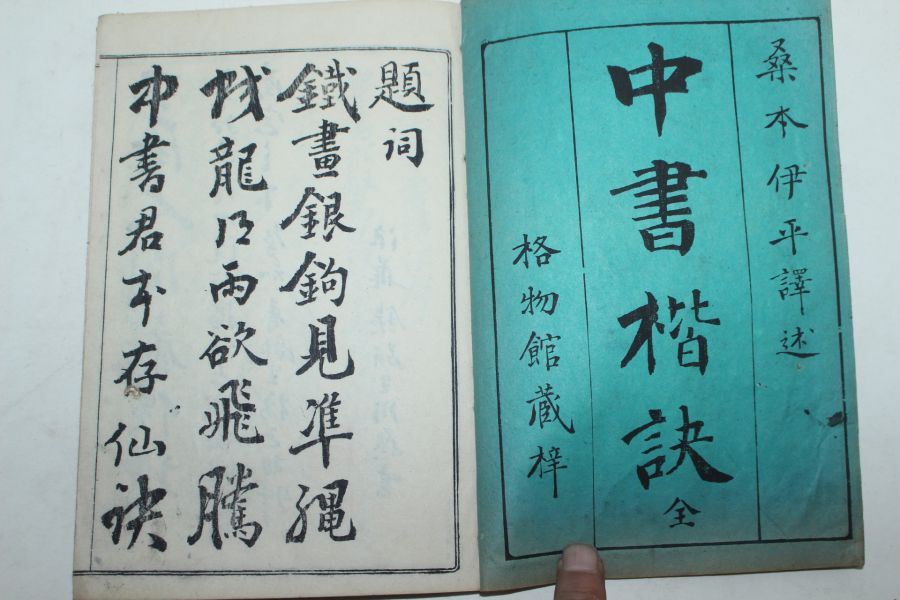 桑本伊平譯述
中書楷訣 全
格物館蔵梓
題詞
鐵畫銀鉤見準繩
龍 雨欲飛騰
中書君本存仙訣